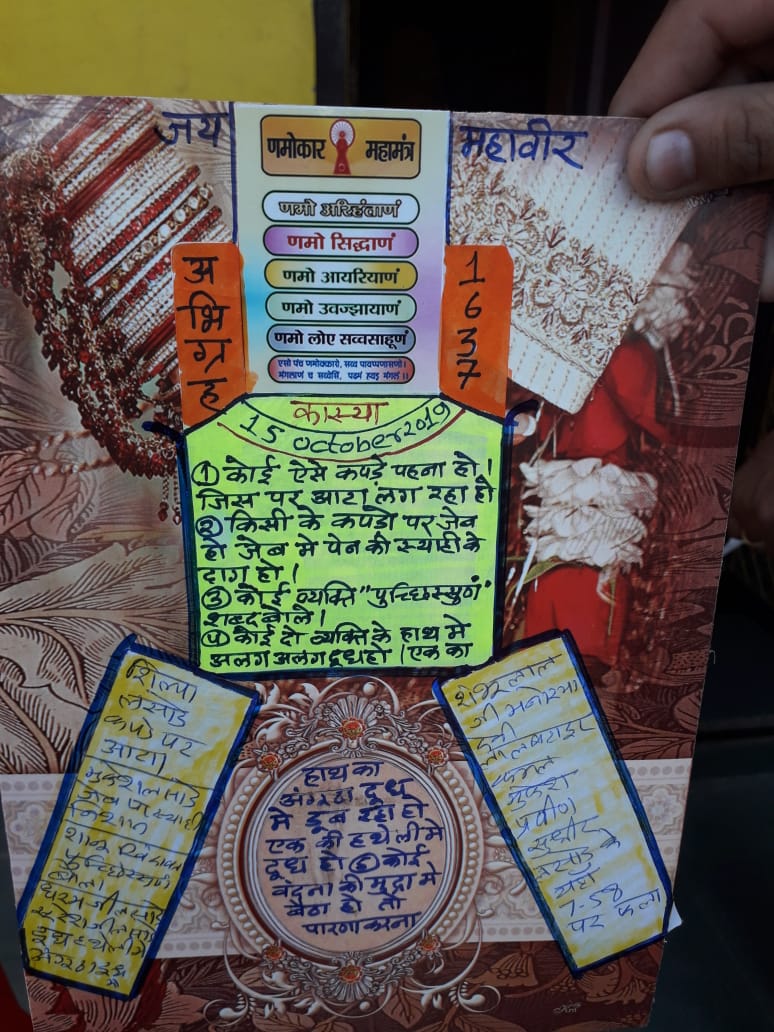 जय
महावीर
णमोकार महामंत्र
णमो अरिहंताणं
णमो सिद्धाणं
णमो आयरियाणं
णमो उवज्झायाणं
णमो लोए सव्वसाहूणं
एसो पंच णमोक्कारो, सव्व पावप्पणासणो।
मंगलाणं च सव्वेसिं, पढमं हवइ मंगलं।।
अ
भि
ग्र
ह
1
6
3
7
कास्या
15 october 2019
① कोई ऐसे कपड़े पहना हो।
जिस पर आटा लग रहा हो
② किसी के कपडो पर जेब
हो जेब मे पेन की स्याही के
दाग हो।
③ कोई व्यक्ति "पुच्छिस्सुणं"
शब्द बोले।
④ कोई दो व्यक्ति के हाथ मे
अलग अलग दूध हो। एक का
हाथ का
अंगूठा दूध
मे डूब रहा हो
एक की हथेली मे
दूध हो ⑤ कोई
वंदना की मुद्रा मे
बैठा हो तो
पारणा करना
शिल्पा
लसोड
कपडे पर
आटा
बोला
शंकरलाल
जी मनोरमा
प्रवीण
सुधीर
लसोड के
यहाँ
7-58
पर फला